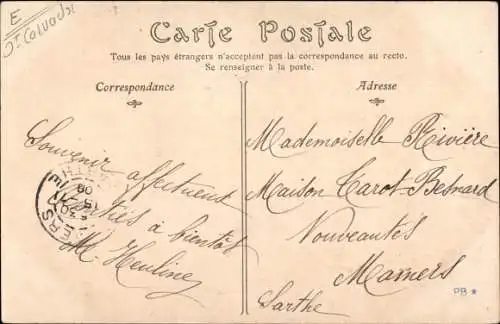 E
Calvados
Carte Postale
Tous les pays étrangers n'acceptent pas la correspondance au recto.
Se renseigner à la poste.
Correspondance
Souvenir affectueux
à bientôt
M.
Adresse
Mademoiselle Rivière
Maison Carot-Besnard
Nouveautés
Mamers
Sarthe
PB *
ERS